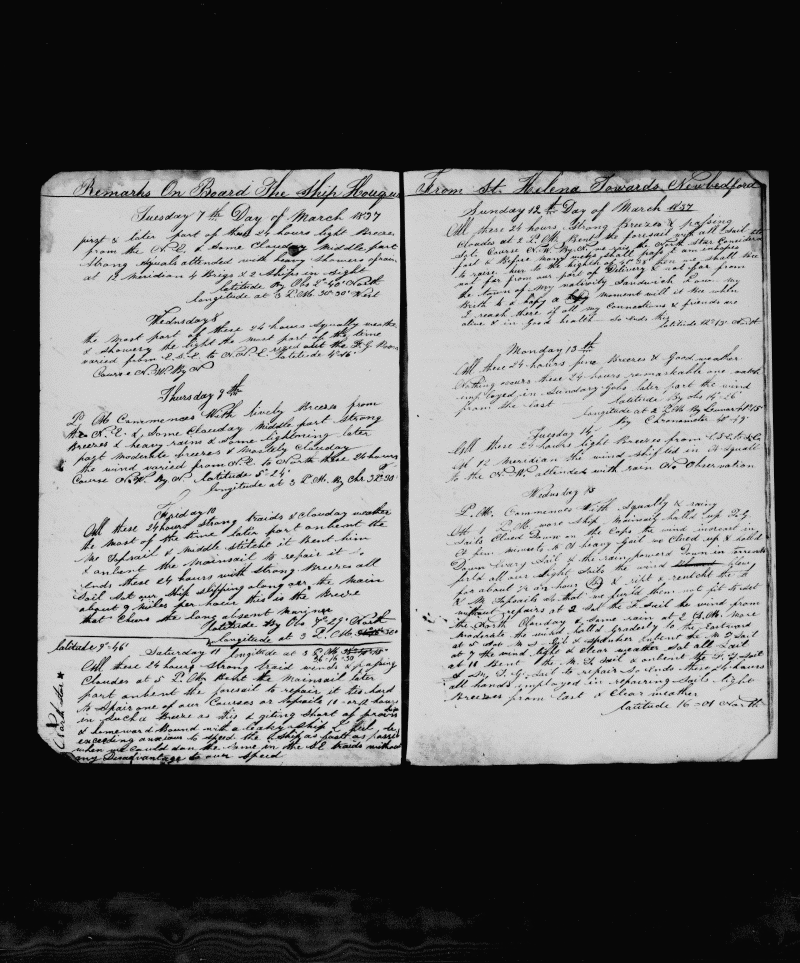 Remarks On Board The Ship Houqua
Tuesday 7th Day of March 1837
first & later part of these 24 hours light Breeze
from the N.E. & Some Clouday Middle part
Strong Squals attended with heavy Showers of rain
at 12 Meridian 4 Brigs & 2 Ships in Sight
latitude By Obs 2°40' North
longitude at 3 P.M. 30°30' West
Wednesday 8
the most part of these 24 hours Squally weather
& Showery the light the most part of the time
varied from E.S.E. to N.N.E.
latitude 4°16'
Course N.W. By N
Thursday 9th
P.M. Commences With lively Breezes from
the N.E. & Some Clouday Middle part Strong
Breezes & heavy rains & Some lightning later
part moderate breezes & mostly Clouday
the wind varied from N.E. to North these 24 hours
Course N.W. By N latitude 5°24'
longitude at 3 P.M. By Chr
Friday 10
All these 24 hours Strong traids & clouday weather
the most of the time later part unbent the
M. Topsail & Middle Stitcht it Bent him
& unbent the mainsail to repair it So
Ends these 24 hours with Strong Breezes all
Sail Set our Ship Slipping along over the Main
about 9 Miles per hour this is the Breeze
that Chears the long absent Mariner
latitude By Obs 7°29' North
longitude at 3 P.M.
latitude 9°46'
Saturday 11 longitude at 3 P.M.
36°16'30
All these 24 hours Strong traid winds & passing
Clouds at 5 P.M. Bent the Mainsail later
part unbent the foresail to repair it tis hard
to Spair one of our Courses or Topsails 10 or 12 hours
in Such a Breeze as this & giting Short of provis
& homeward Bound with a leaky Ship I feel
exceeding anxious to Speed the Ship as fast as possible
when we Could don the Same in the S.E. traids without
my Disadvantage to our Speed
From St. Helena Towards Newbedford
Sunday 12th Day of March 1837
All these 24 hours Strong Breezes & passing
Clouds at 2 P.M. Bent the foresail with all Sail
Set Course N.W. By N.
to raise her to the highth of 41°35' then we shall Be
not far from our port of Delivery & not far from
the town of My nativity Sandwich
Birth & a hapy a moment will it Be when
I reach there if all my Connections & friends are
alive & in Good health So Ends this
latitude 12°13' North
Monday 13th
All these 24 hours fine Breezes & Good weather
Nothing occurs these 24 hours remarkable
employed in Sundary Jobs later part the wind
from the East latitude By Obs 14°26'
longitude at 2 P.M. By Lunar
By Chronometer
Tuesday 14
All these 24 hours light Breezes from
At 12 Meridian the wind Shifted in A Squall
to the N.W. attended with rain No Observation
Wednesday 15
P.M. Commences With Squally & rainy
At 1 P.M. wore Ship Mainsail halled up
Sails Clued Down on the Caps the wind increast in
A few minuets to A heavy Gail we Clued up & halled
Down Every Sail & the rain powered Down in torrents
furld all our light Sails the wind Blew
for about ½ an hour & rept & rencht the
& M Topsails So that we furld them not fit to Set
without repairs at 2 Set the F. Sail the wind from
the North Clouday & Some rain at 2 A.M. More
Moderate the wind halled Graduly to the Eastward
at 5 Set M. Sail Jib & Spanker unbent the M T Sail
at 7 the wind light & Clear weather Set all Sail
at 11 Bent the M. T Sail & unbent the F. T Sail
& M. T. G. Sail to repair So Ends these 24 hours
all hands employed in repairing Sails light
Breezes from East & Clear weather
latitude 16°01 North